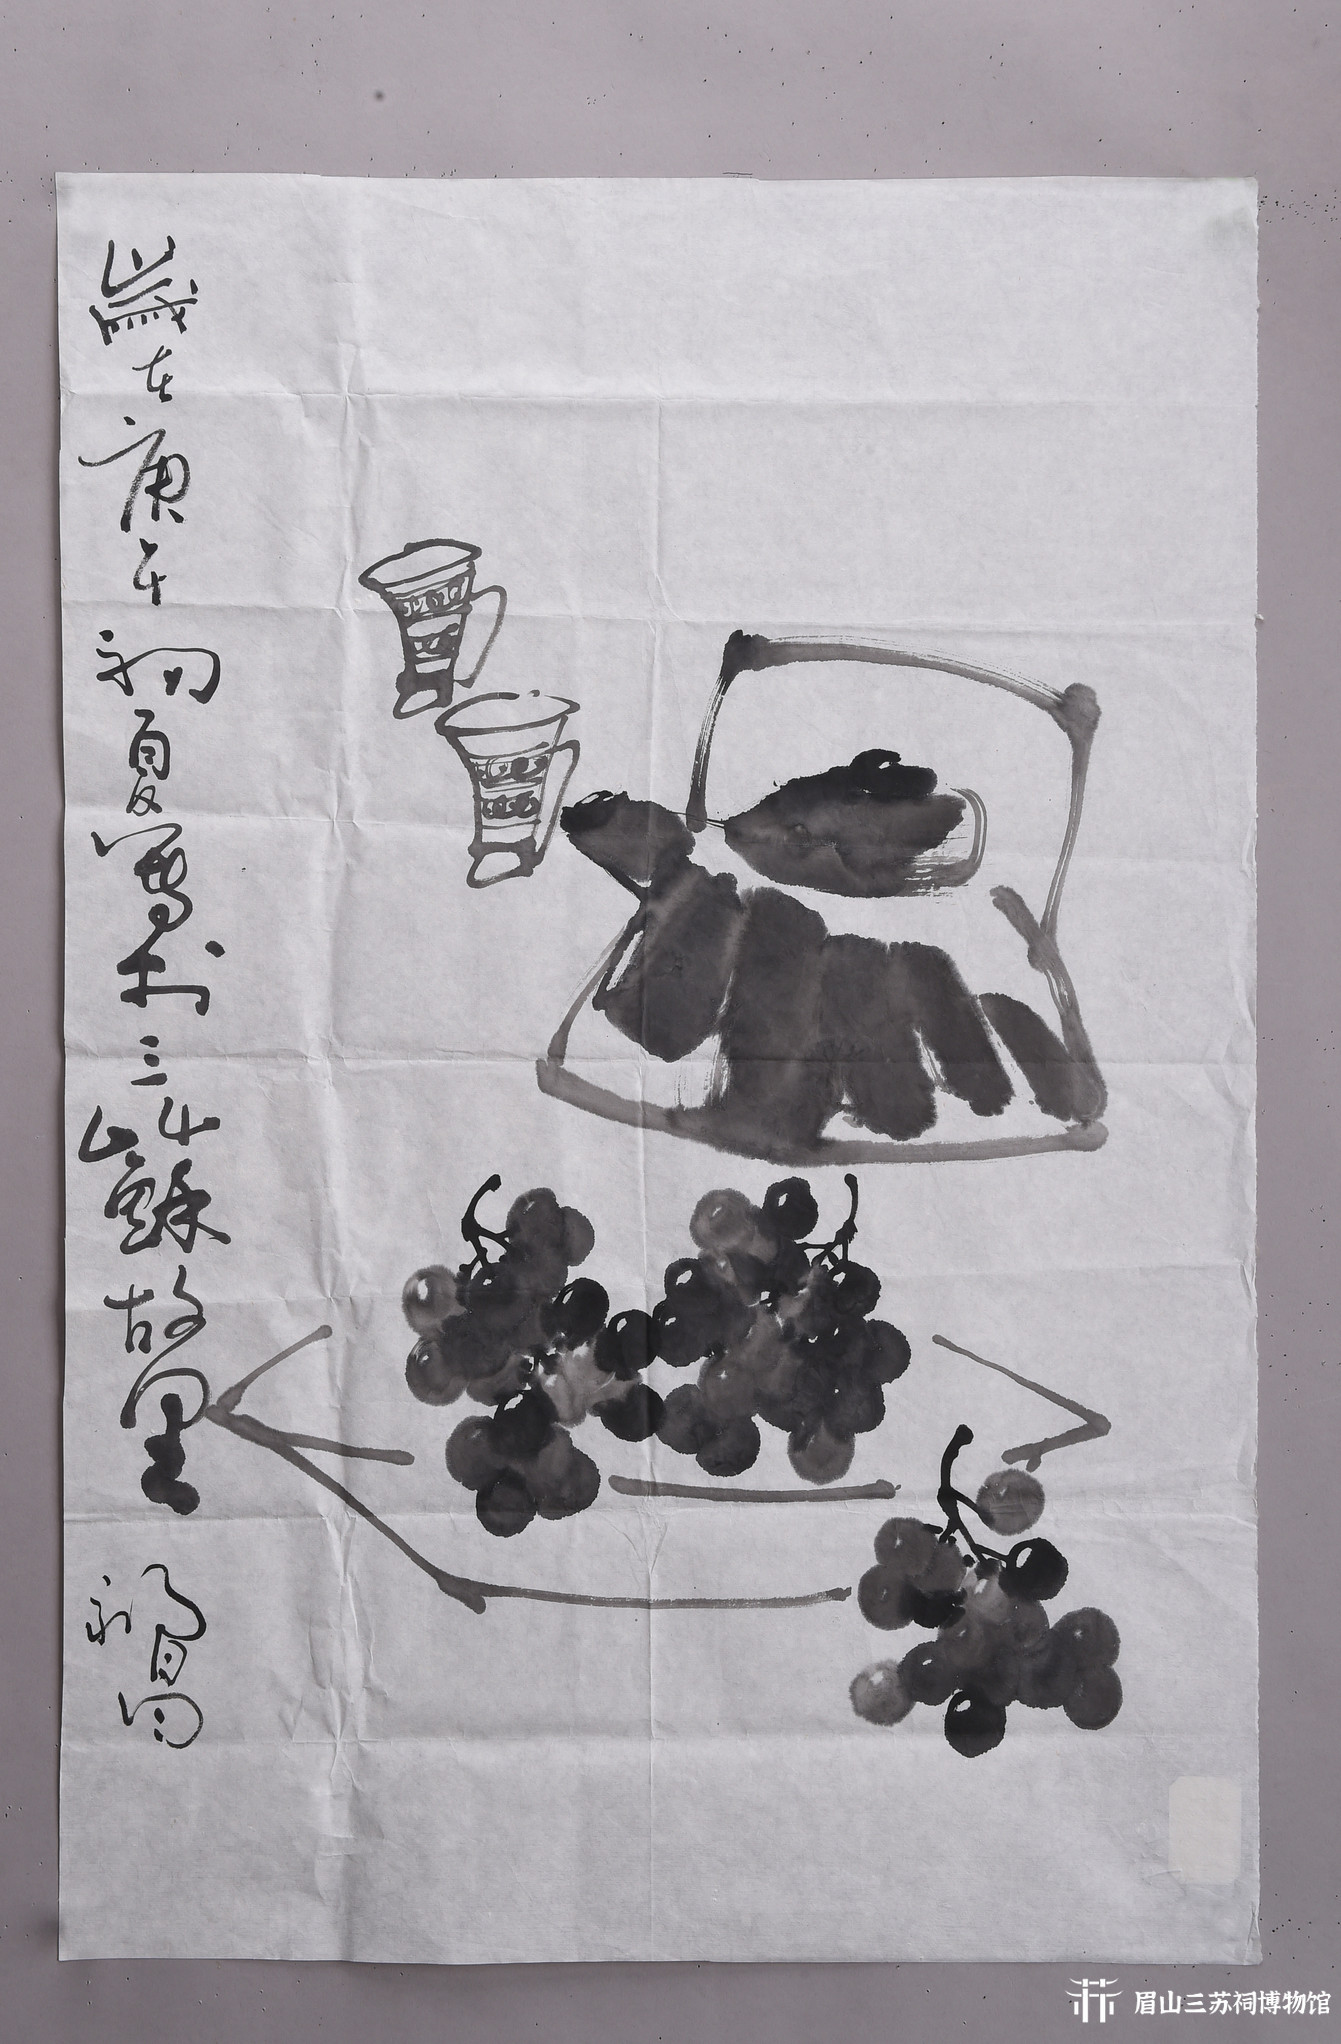 歲在庚午初夏寫於三蘇故里
眉山三苏祠博物馆